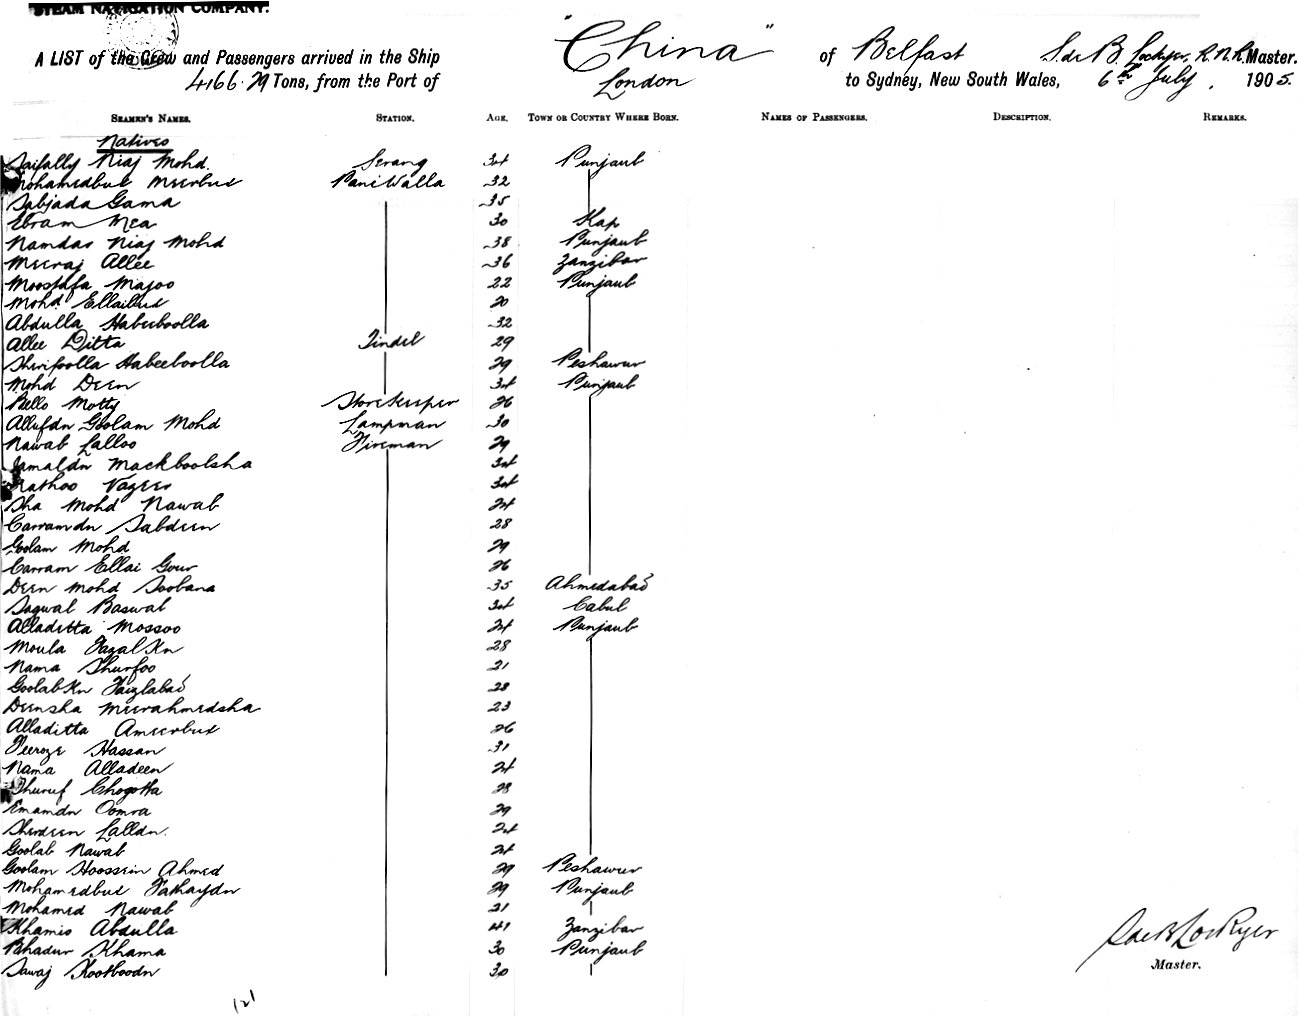 STEAM NAVIGATION COMPANY.
A LIST of the Crew and Passengers arrived in the Ship "China" of Belfast S. de B. Lockyer, R.N.R. Master.
4166.29 Tons, from the Port of London to Sydney, New South Wales, 6th July, 1905.
SEAMEN'S NAMES. STATION. AGE. TOWN OR COUNTRY WHERE BORN. NAMES OF PASSENGERS. DESCRIPTION. REMARKS.
Natives
Saifally Niaj Mohd. Serang 34 Punjaub
Mohamedbux Meerbux PaniWalla 32
Sabjada Gama 35
Ebram Mea 30 Kap
Namdar Niaj Mohd 38 Punjaub
Meeraj Allee 36 Zanzibar
Moostafa Majoo 22 Punjaub
Mohd Ellaibux 20
Abdulla Habeeboolla 32
Allee Ditta Tindel 29
Sherifoolla Habeeboolla 29 Peshawur
Mohd Deen 34 Punjaub
Bello Motty Storekeeper 26
Allufdn Goolam Mohd Lampman 30
Nawab Lalloo Fireman 29
Jamaldn Mackboolsha 34
Nathoo Vazeer 34
Sha Mohd Nawab 24
Carramdn Sabdeen 28
Goolam Mohd 29
Carram Ellai Gour 26
Deen Mohd Soobana 35 Ahmedabad
Sagwal Baswal 34 Cabul
Alladitta Mossoo 24 Punjaub
Moula Fazal Kn 28
Nama Shurfoo 21
Goolab Kn Faizlabad 28
Deensha Meerahmedsha 23
Alladitta Ameerbux 26
Feeroze Hassan 31
Nama Alladeen 24
Shuruf Chogotta 28
Emamdn Oomra 29
Sherdeen Lalldn. 24
Goolab Nawab 24
Goolam Hoossein Ahmed 29 Peshawur
Mohamedbux Fathaydn 29 Punjaub
Mohamed Nawab 21
Khamis Abdulla 41 Zanzibar
Bhadur Khama 30 Punjaub
Sawaj Kootboodn 30
SdeB Lockyer
Master.
121